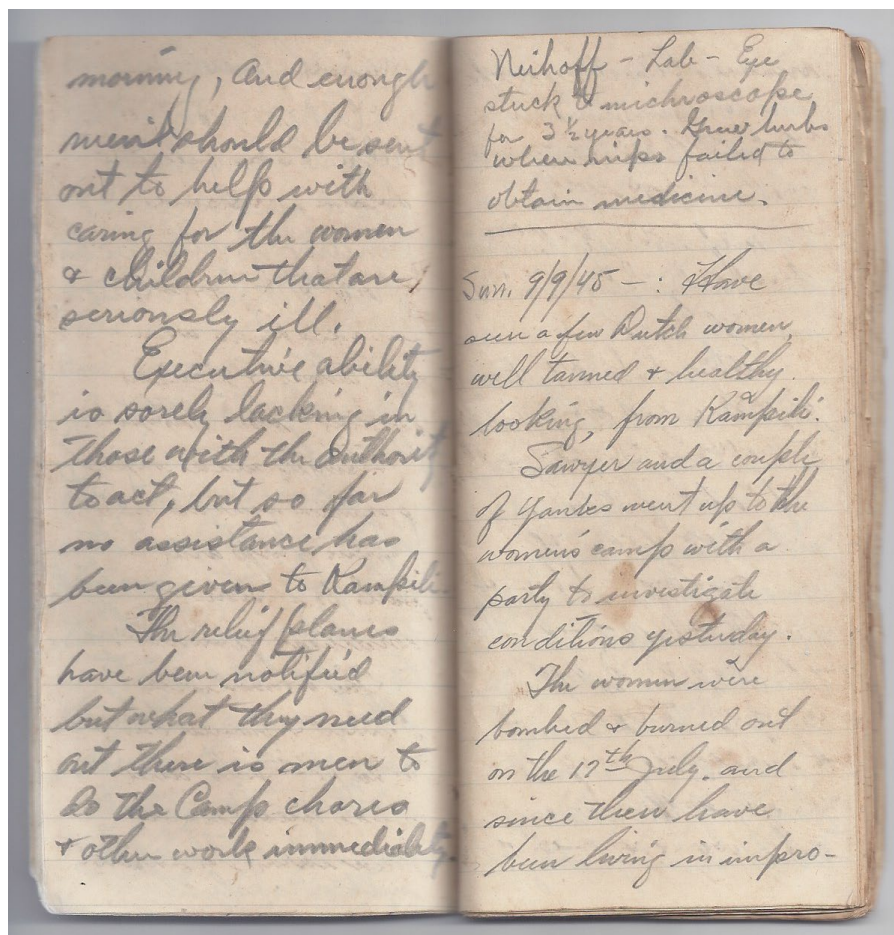 morning, and enough
men should be sent
out to help with
caring for the women
& children that are
seriously ill.
Executive ability
is sorely lacking in
those with the authority
to act, but so far
no assistance has
been given to Kampili.
The relief planes
have been notified
but what they need
out there is men to
do the Camp chores
& other work immediately.
Neihoff - Lab - Eye
stuck to michroscope
for 3 1/2 years. Grew herbs
when nips failed to
obtain medicine.
Sun. 9/9/45 - : Have
seen a few Dutch women,
well tanned & healthy
looking, from Kampili.
Sawyer and a couple
of Yanks went up to the
women's camp with a
party to investigate
conditions yesterday.
The women were
bombed & burned out
on the 17th July. and
since then have
been living in impro-